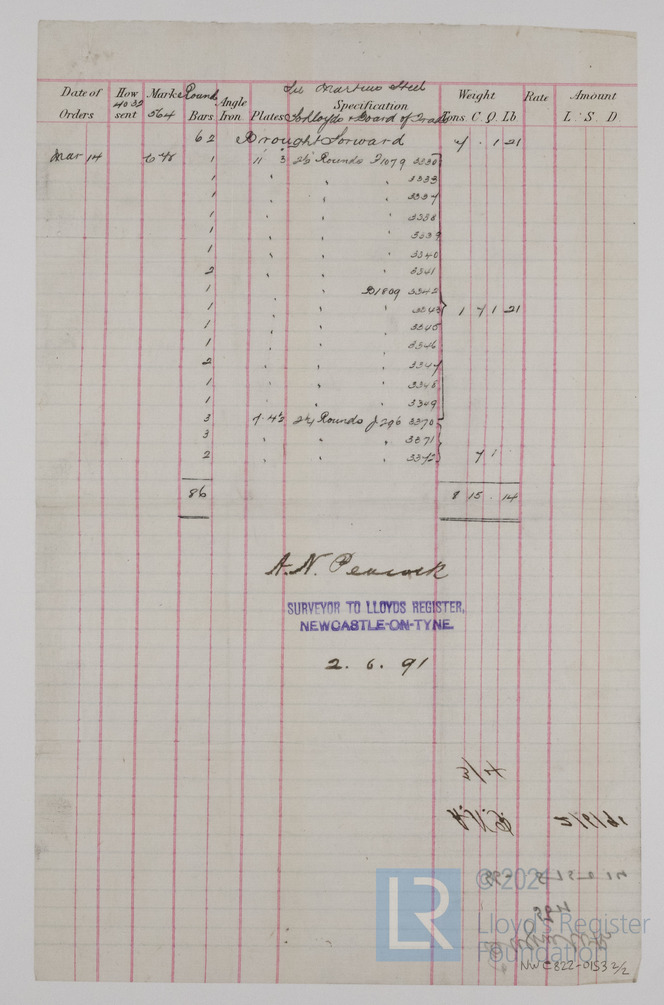 Siemens Martins Steel
Date of Orders How sent Marks Round Bars Angle Iron Plates Specification Weight Tons. C. Q. Lb Rate Amount L. S. D
564 Lloyds & Board of Trade
62 Brought forward 7 . 1 21
Mar 14 1 11 3 2⅝ Rounds 3330
1 " " " 3333
1 " " " 3334
1 " " " 3338
1 " " " 3339
1 " " " 3340
2 " " " 3341
1 " " B1809 3342
1 " " " 3343 1 7 1 21
1 " " " 3345
1 " " " 3346
2 " " " 3347
1 " " " 3348
1 " " " 3349
3 2¼ Rounds J296 3370
3 " " " 3371
2 " " " 3372 7 1
86 8 15 . 14
A. N. Peacock
SURVEYOR TO LLOYDS REGISTER,
NEWCASTLE-ON-TYNE.
2. 6. 91
LR
© 2021
Lloyd's Register
Foundation
NWC822-0153 2/2